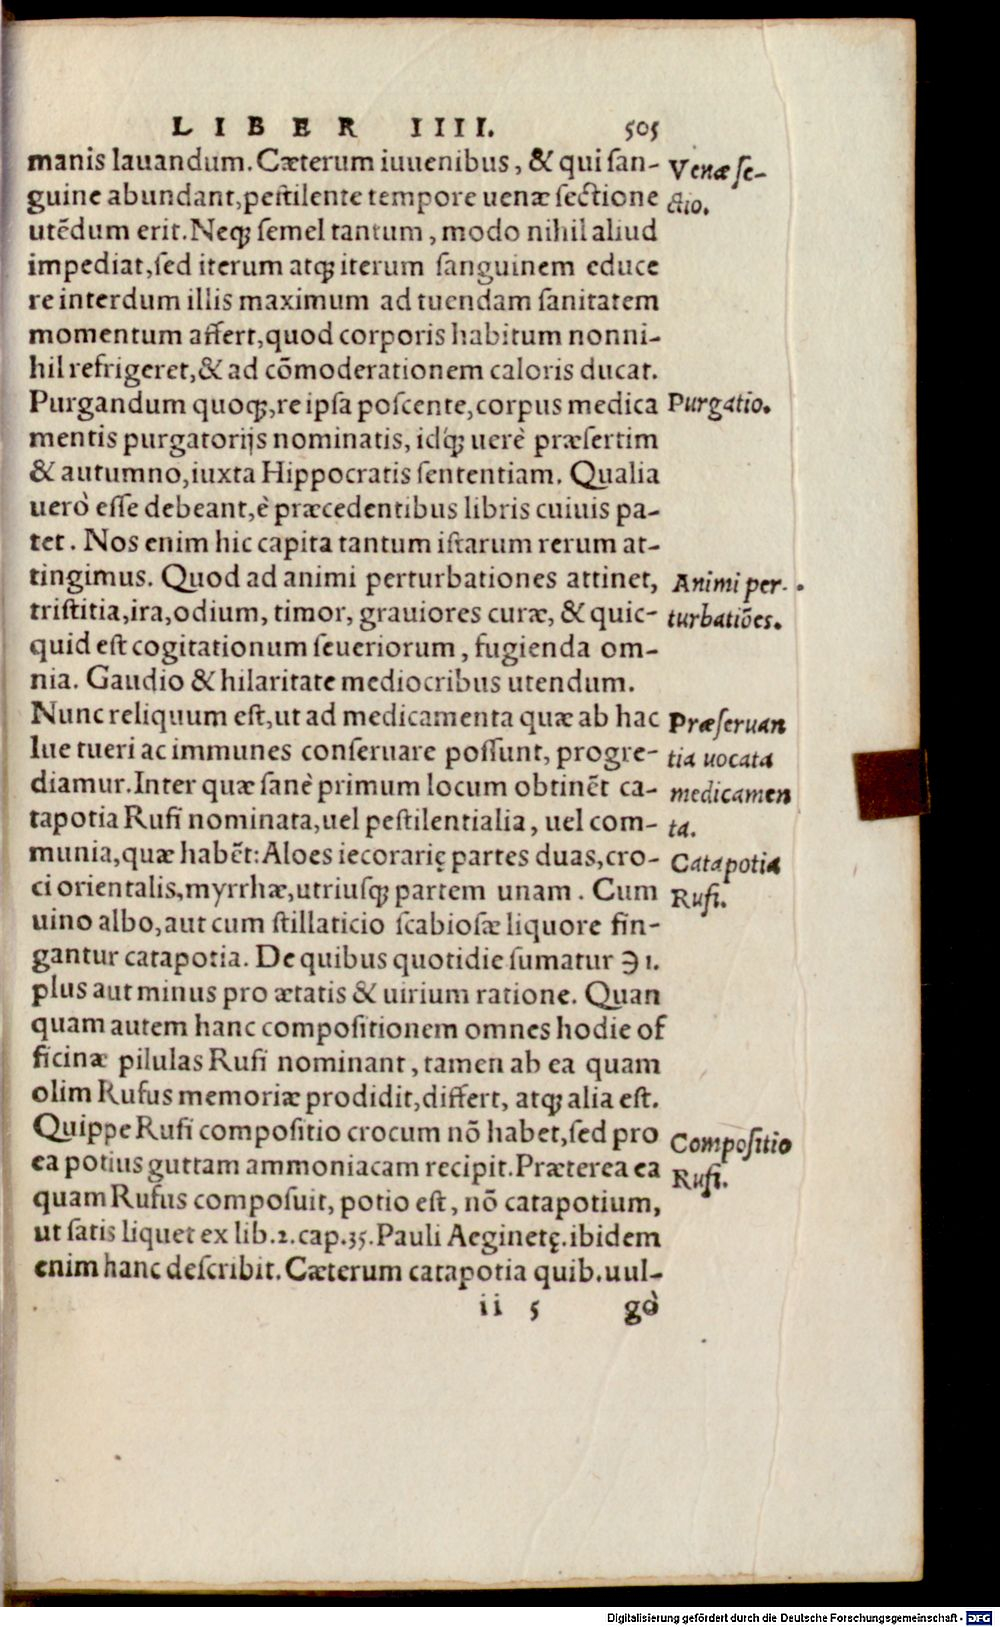 LIBER IIII. 505
manis lauandum. Cæterum iuuenibus, & qui san-
guine abundant, pestilente tempore uenæ sectione
utēdum erit. Neqꝫ semel tantum, modo nihil aliud
impediat, sed iterum atqꝫ iterum sanguinem educe
re interdum illis maximum ad tuendam sanitatem
momentum affert, quod corporis habitum nonni-
hil refrigeret, & ad cōmoderationem caloris ducat.
Purgandum quoqꝫ, re ipsa poscente, corpus medica
mentis purgatorijs nominatis, idq́ꝫ uerè præsertim
& autumno, iuxta Hippocratis sententiam. Qualia
uerò esse debeant, è præcedentibus libris cuiuis pa-
tet. Nos enim hic capita tantum istarum rerum at-
tingimus. Quod ad animi perturbationes attinet,
tristitia, ira, odium, timor, grauiores curæ, & quic-
quid est cogitationum seueriorum, fugienda om-
nia. Gaudio & hilaritate mediocribus utendum.
Nunc reliquum est, ut ad medicamenta quæ ab hac
lue tueri ac immunes conseruare possunt, progre-
diamur. Inter quæ sanè primum locum obtinēt ca-
tapotia Rufi nominata, uel pestilentialia, uel com-
munia, quæ habēt: Aloes iecorarię partes duas, cro-
ci orientalis, myrrhæ, utriusqꝫ partem unam. Cum
uino albo, aut cum stillaticio scabiosæ liquore fin-
gantur catapotia. De quibus quotidie sumatur ℈ 1.
plus aut minus pro ætatis & uirium ratione. Quan
quam autem hanc compositionem omnes hodie of
ficinæ pilulas Rufi nominant, tamen ab ea quam
olim Rufus memoriæ prodidit, differt, atqꝫ alia est.
Quippe Rufi compositio crocum nō habet, sed pro
ea potius guttam ammoniacam recipit. Præterea ea
quam Rufus composuit, potio est, nō catapotium,
ut satis liquet ex lib. 2. cap. 35. Pauli Aeginetę. ibidem
enim hanc describit. Cæterum catapotia quib. uul-
ii 5 gò
Venæ se-
ctio.
Purgatio.
Animi per-
turbatiōes.
Præseruan
tia uocata
medicamen
ta.
Catapotia
Rufi.
Compositio
Rufi.
Digitalisierung gefördert durch die Deutsche Forschungsgemeinschaft - DFG